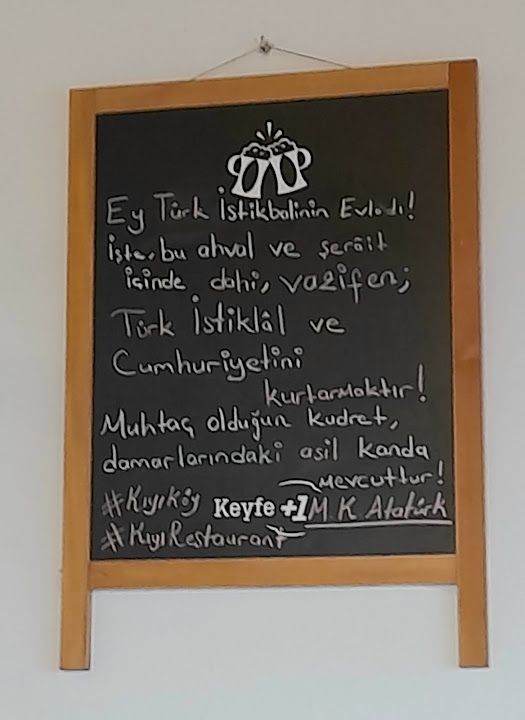 Ey Türk İstikbalinin Evladı!
İşte, bu ahval ve şerâit
içinde dahi, vazifen;
Türk İstiklâl ve
Cumhuriyetini
kurtarmaktır!
Muhtaç olduğun kudret,
damarlarındaki asil kanda
mevcuttur!
#Kıyıköy Keyfe +1 M K Atatürk
#KıyıRestaurant